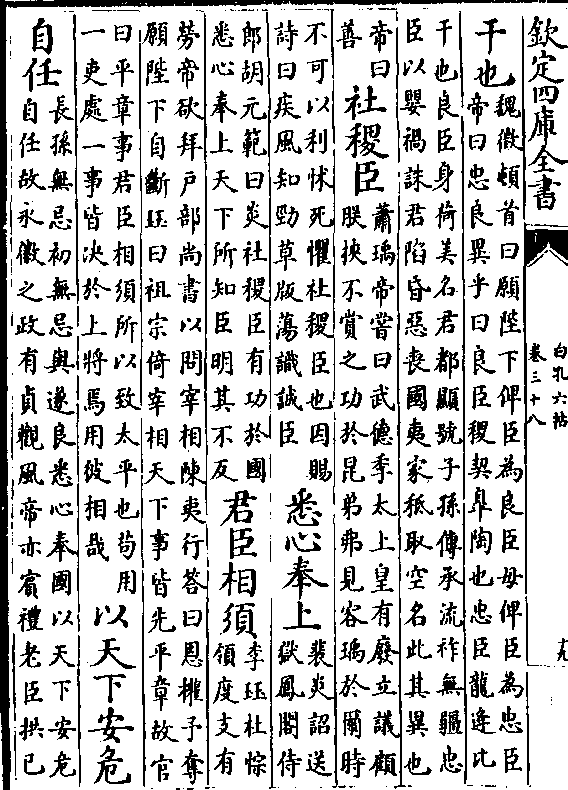 欽定四庫全書
白孔六帖
卷三十八
十九
干也
魏徵頓首曰願陛下俾臣為良臣毋俾臣為忠臣
帝曰忠良異乎曰良臣稷契臯陶也忠臣龍逄比
干也良臣身荷美名君都顯號子孫傳承流祚無疆忠
臣以嬰禍誅君陷昏惡喪國夷家秪取空名此其異也
帝曰
善
社稷臣
蕭瑀帝嘗曰武德季太上皇有廢立議顧
朕挾不賞之功於昆弟弗見容瑀於爾時
不可以利怵死懼社稷臣也因賜
詩曰疾風知勁草版蕩識誠臣
悉心奉上
裴炎詔送
獄鳳閣侍
郎胡元範曰炎社稷臣有功於國
悉心奉上天下所知臣明其不反
君臣相須
李珏杜悰
領度支有
勞帝欲拜戶部尚書以問宰相陳夷行答曰恩權予奪
願陛下自斷珏曰祖宗倚宰相天下事皆先平章故官
曰平章事君臣相須所以致太平也苟用
一吏處一事皆決於上將焉用彼相哉
以天下安危
自任
長孫無忌初無忌與遂良悉心奉國以天下安危
自任故永徽之政有貞觀風帝亦賓禮老臣拱已